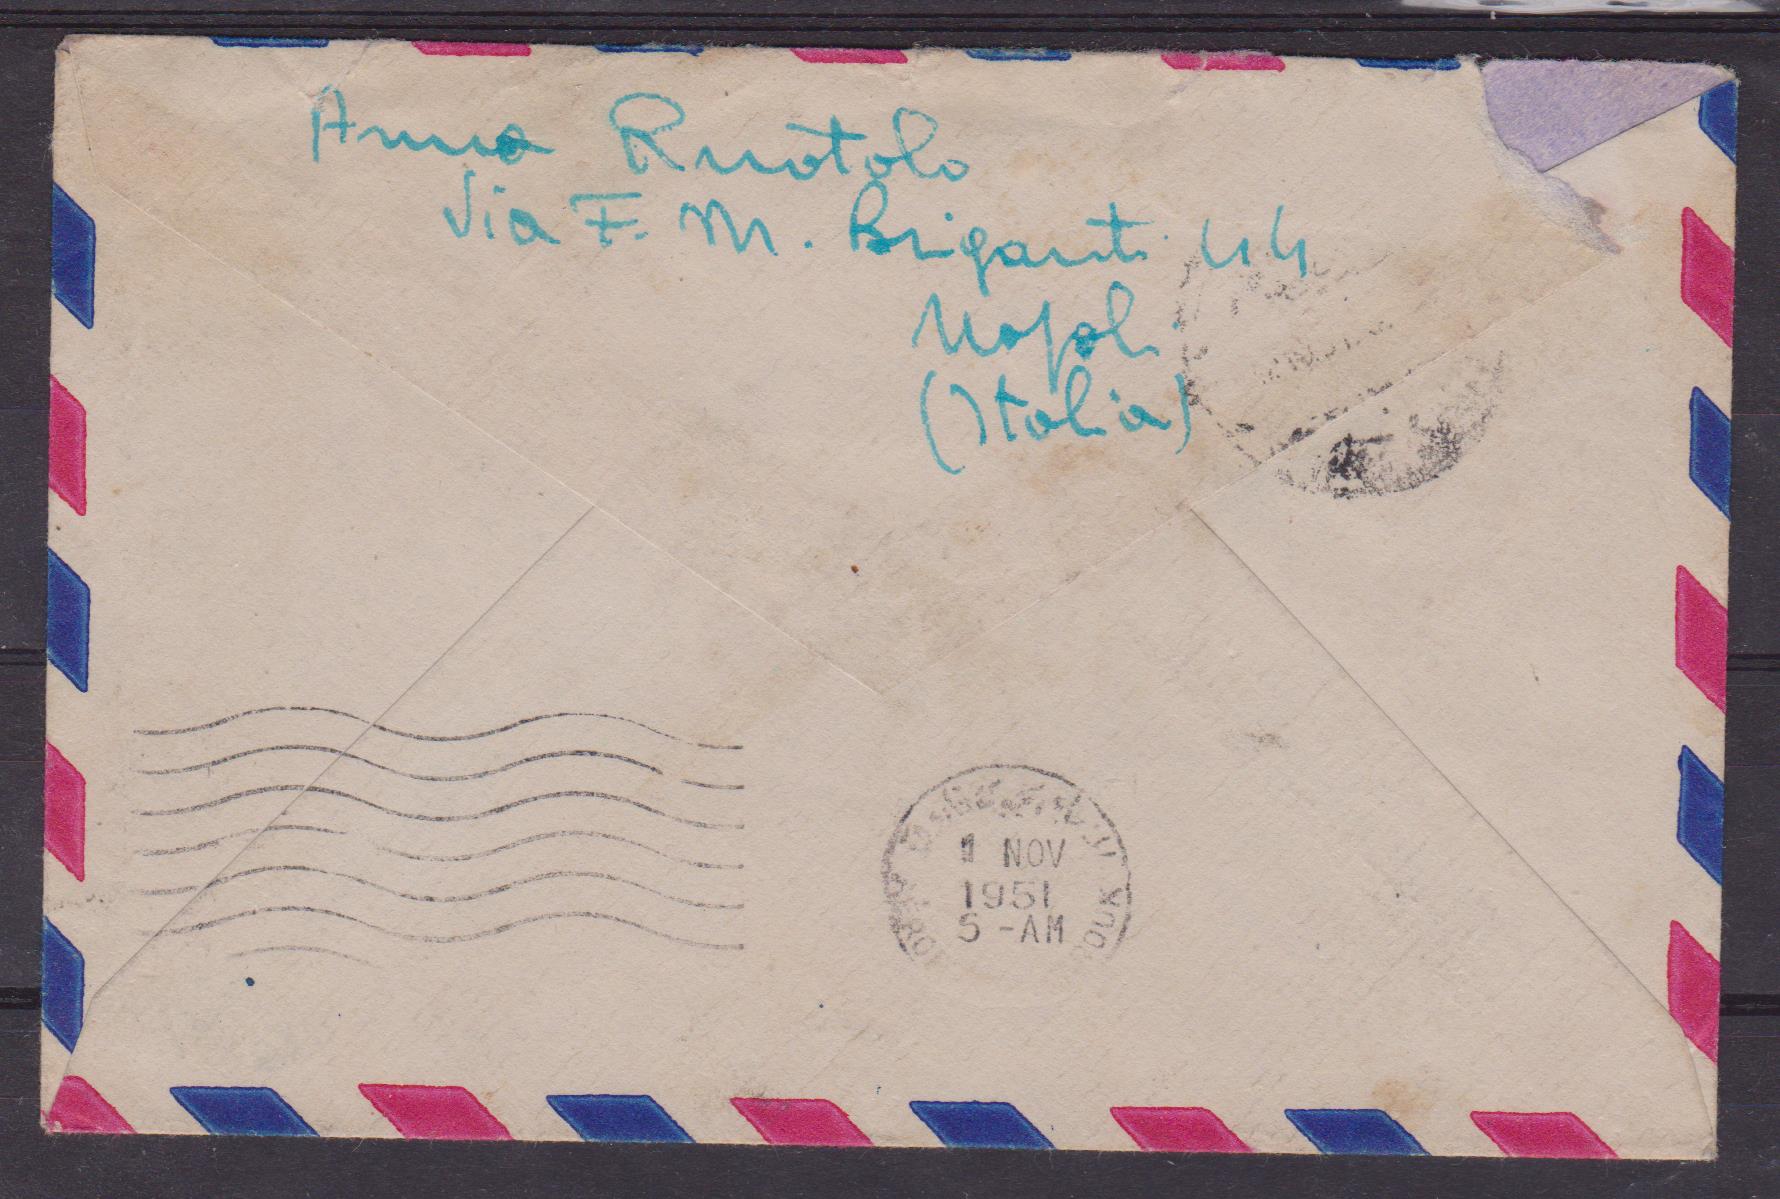 Anna Ruotolo
Via F. M. Briganti 44
Napoli
(Italia)
1 NOV
1951
5 -AM